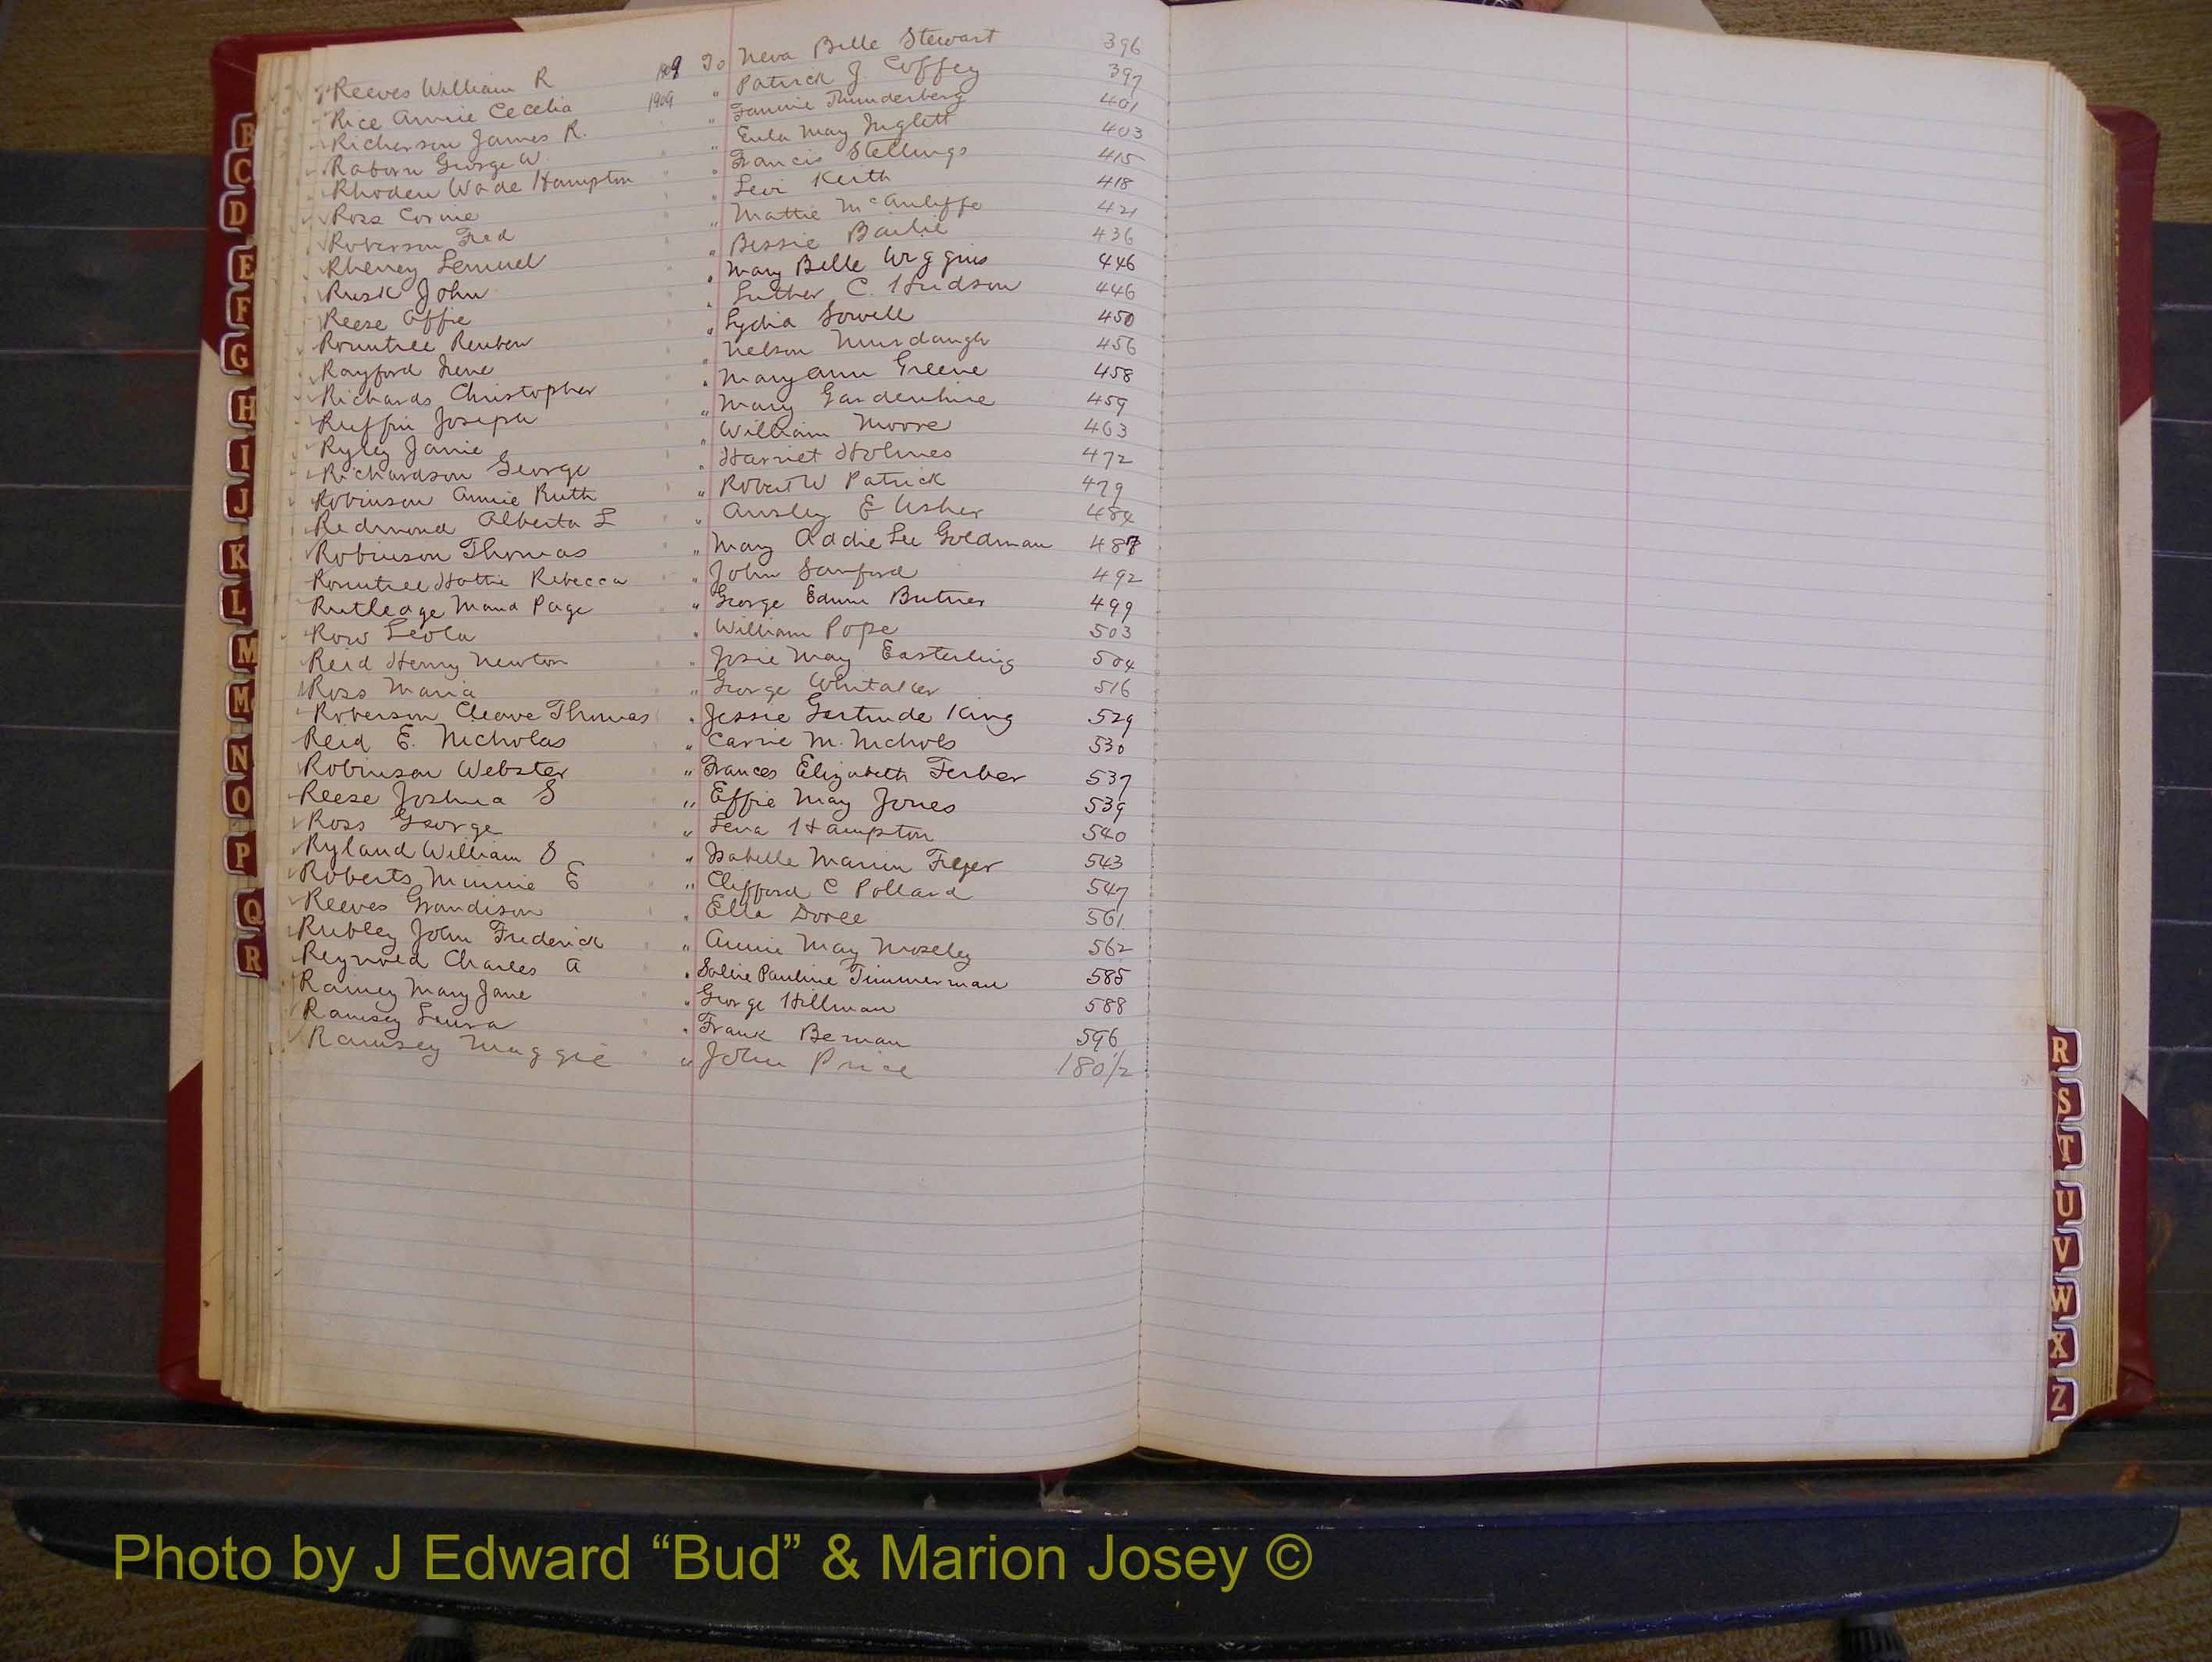 Reeves William R 1909 To Neva Belle Stewart 396
Rice Annie Cecelia 1909 " Patrick J. Coffey 397
Richerson James R. " Fannie Thunderberg 401
Raborn George W. " Eula May Inglett 403
Rhoden Wade Hampton " Francis Stellings 415
Ross Corine " Levi Keith 418
Roberson Fred " Mattie McAuliffe 421
Rheney Lemuel " Bessie Bailie 436
Rusk John " Mary Belle Wiggins 446
Reese Affie " Luther C. Hudson 446
Rountree Reuben " Lydia Sowell 450
Rayford Irene " Nelson Murdaugh 456
Richards Christopher " Mary Ann Greene 458
Ruffin Joseph " Mary Gardenhire 459
Ryley Janie " William Moore 463
Richardson George " Harriet Holmes 472
Robinson Annie Ruth " Robert W Patrick 479
Redmond Alberta L " Ansley E Usher 484
Robinson Thomas " Mary Addie Lee Goldman 487
Rountree Hattie Rebecca " John Sanford 492
Rutledge Maud Page " George Edwin Butner 499
Row Leola " William Pope 503
Reid Henry Newton " Josie May Easterling 504
Ross Maria " George Whitaker 516
Roberson Cleave Thomas " Jessie Gertrude King 529
Reid E. Nicholas " Carrie M. Nichols 530
Robinson Webster " Frances Elizabeth Ferber 537
Reese Joshua S " Effie May Jones 539
Ross George " Lena Hampton 540
Ryland William S " Isabelle Marion Fleger 543
Roberts Minnie E " Clifford C Pollard 547
Reeves Grandison " Ella Doree 561
Rubley John Frederick " Annie May Moseley 562
Reynold Charles A " Salie Pauline Timmerman 585
Rainey Mary Jane " George Hillman 588
Ramsey Laura " Frank Beman 596
Ramsey Maggie " John Price 180½
B
C
D
E
F
G
H
I
J
K
L
M
Mc
N
O
P
Q
R
R
S
T
U
V
W
X
Z
Photo by J Edward “Bud” & Marion Josey ©